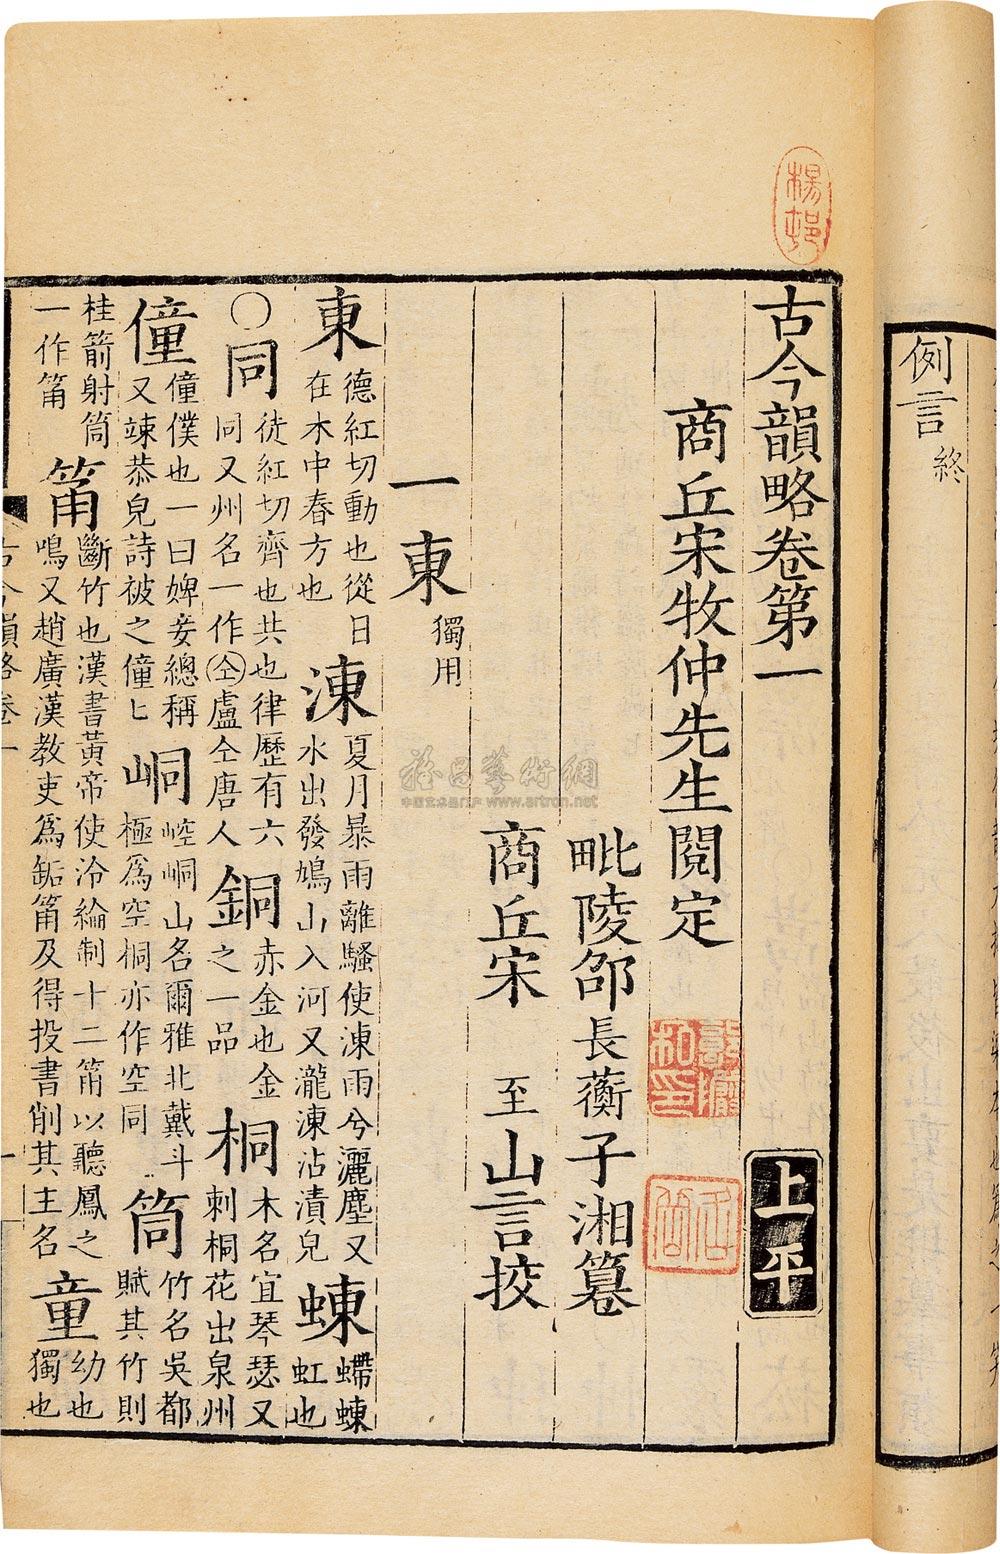 例言終
楊邨
古今韻略卷第一
上平
商丘宋牧仲先生閱定
毗陵邵長蘅子湘篡
商丘宋至山言挍
一東獨用
東德紅切動也從日在木中春方也涷夏月暴雨離騷使涷雨兮灑塵又水出發鳩山入河又瀧涷沾漬皃蝀螮蝀虹也
○同徒紅切齊也共也律歷有六同又州名一作仝盧仝唐人銅赤金也金之一品桐木名宜琴瑟又刺桐花出泉州
僮僮僕也一曰婢妾總稱又竦恭皃詩被之僮匕峒崆峒山名爾雅北戴斗極爲空桐亦作空同筒竹名吳都賦其竹則
桂箭射筒一作筩筩斷竹也漢書黃帝使泠綸制十二筩以聽鳳之鳴又趙廣漢教吏爲缿筩及得投書削其主名童幼也獨也
古今韻略卷一
一
中国艺术品门户 www.artron.net